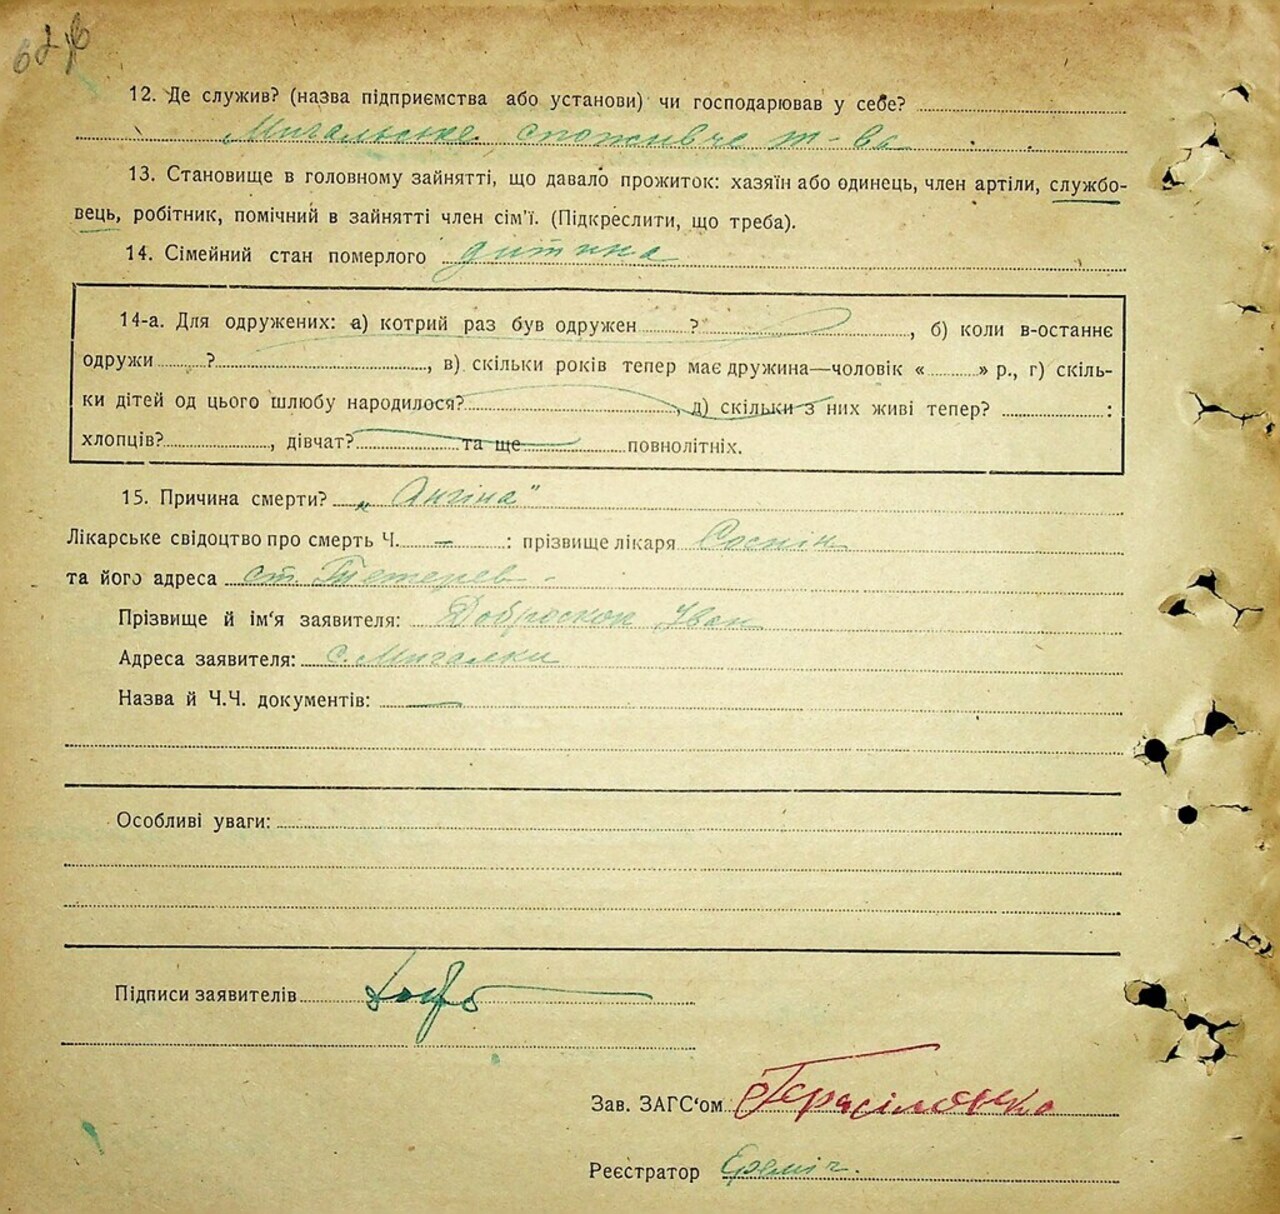 12. Де служив? (назва підприємства або установи) чи господарював у себе?
Мигальське споживче т-во
13. Становище в головному зайнятті, що давало прожиток: хазяїн або одинець, член артілі, службо-
вець, робітник, помічний в зайнятті член сім'ї. (Підкреслити, що треба).
14. Сімейний стан померлого дитина
14-а. Для одружених: а) котрий раз був одружен ? , б) коли в-останнє
одружи ? , в) скільки років тепер має дружина—чоловік « » р., г) скіль-
ки дітей од цього шлюбу народилося? , д) скільки з них живі тепер? :
хлопців? , дівчат? та ще повнолітніх.
15. Причина смерти? „Ангіна"
Лікарське свідоцтво про смерть Ч. — : прізвище лікаря
та його адреса ст. Тетерев
Прізвище й ім'я заявителя: Доброскок Іван
Адреса заявителя: с. Мигалки
Назва й Ч.Ч. документів: —
Особливі уваги:
Підписи заявителів
Зав. ЗАГС'ом
Реєстратор